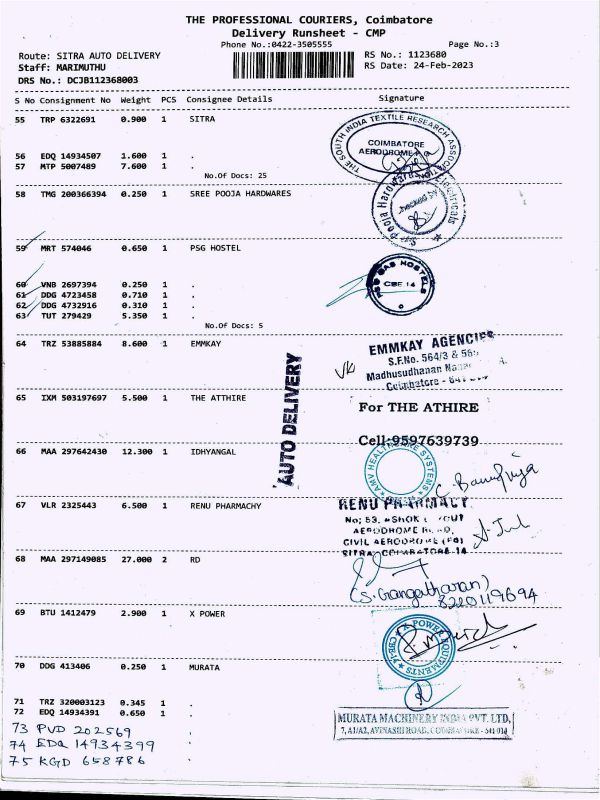 THE PROFESSIONAL COURIERS, Coimbatore
Delivery Runsheet - CMP
Phone No.:0422-3505555 Page No.:3
Route: SITRA AUTO DELIVERY RS No.: 1123680
Staff: MARIMUTHU RS Date: 24-Feb-2023
DRS No.: DCJB112368003
S No Consignment No Weight PCS Consignee Details Signature
55 TRP 6322691 0.900 1 SITRA
THE SOUTH INDIA TEXTILE RESEARCH
COIMBATORE
AERODROME
56 EDQ 14934507 1.600 1 .
57 MTP 5007489 7.600 1 .
No.Of Docs: 25
58 TMG 200366394 0.250 1 SREE POOJA HARDWARES
Pooja Hardwares Electricals
checked by
59 MRT 574046 0.650 1 PSG HOSTEL
HOSTELS
CBE 14
60 VNB 2697394 0.250 1 .
61 DDG 4723458 0.710 1 .
62 DDG 4732916 0.310 1 .
63 TUT 279429 5.350 1 .
No.Of Docs: 5
64 TRZ 53885884 8.600 1 EMMKAY
EMMKAY AGENCIES
S.F.No. 564/3 &
Madhusudhanan
Coimbatore -
AUTO DELIVERY
65 IXM 503197697 5.500 1 THE ATTHIRE
For THE ATHIRE
Cell:9597639739
66 MAA 297642430 12.300 1 IDHYANGAL
AMV HEALTHCARE SYSTEMS
67 VLR 2325443 6.500 1 RENU PHARMACHY
RENU PHARMACY
No; 53, ASHOK
AERODROME
CIVIL AERODROME (PO)
SITRA, COIMBATORE-14
68 MAA 297149085 27.000 2 RD
(S. Gangatharan)
8220119694
69 BTU 1412479 2.900 1 X POWER
POWER EQUIPMENTS
70 DDG 413406 0.250 1 MURATA
71 TRZ 320003123 0.345 1 .
72 EDQ 14934391 0.650 1 .
MURATA MACHINERY INDIA PVT. LTD,
7, A1/A2, AVINASHI ROAD, COIMBATORE - 641 014
73 PVD 202569
74 EDQ 14934399
75 KGD 658786